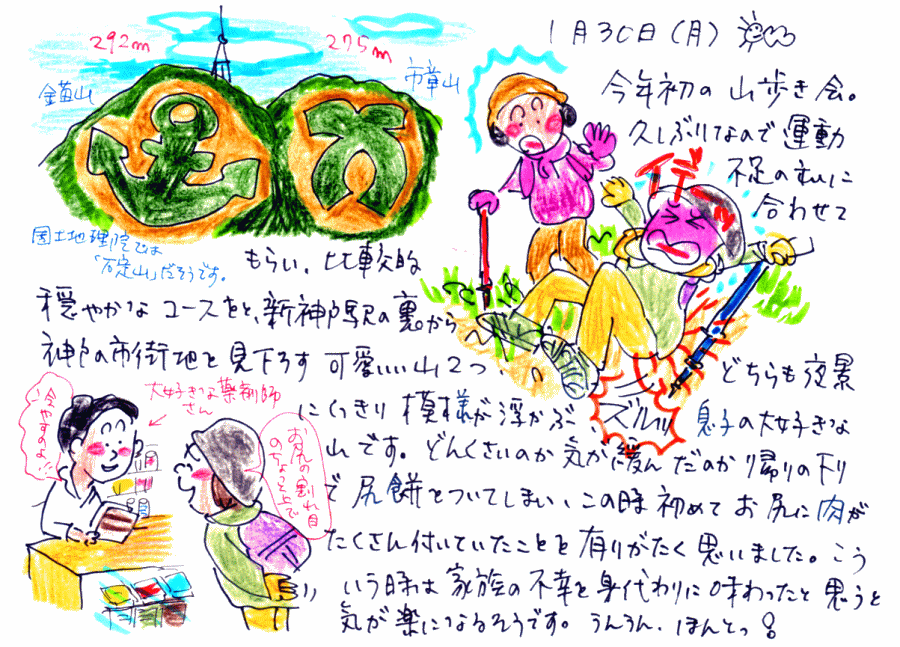 292m
275m
錨山
市章山
国土地理院では
「石定山」だそうです。
1月30日(月)
今年初の山歩き会。
久しぶりなので運動
不足の
合わせて
もらい、比較的
穏やかなコースをと、新神戸駅の裏から
神戸の市街地を見下ろす可愛いい山2つ、
どちらも夜景
にくっきり模様が浮かぶ
息子の大好きな
山です。どんくさいのか気が緩んだのか帰りの下り
で尻餅をついてしまい、この時初めてお尻に肉が
たくさん付いていたことを有りがたく思いました。こう
いう時は家族の不幸を身代わりに味わったと思うと
気が楽になるそうです。うんうん、ほんとっ!
ギャッ
ズルッ
大好きな薬剤師
さん
冷やすのよ!!
お尻の割れ目
のちょっと上で